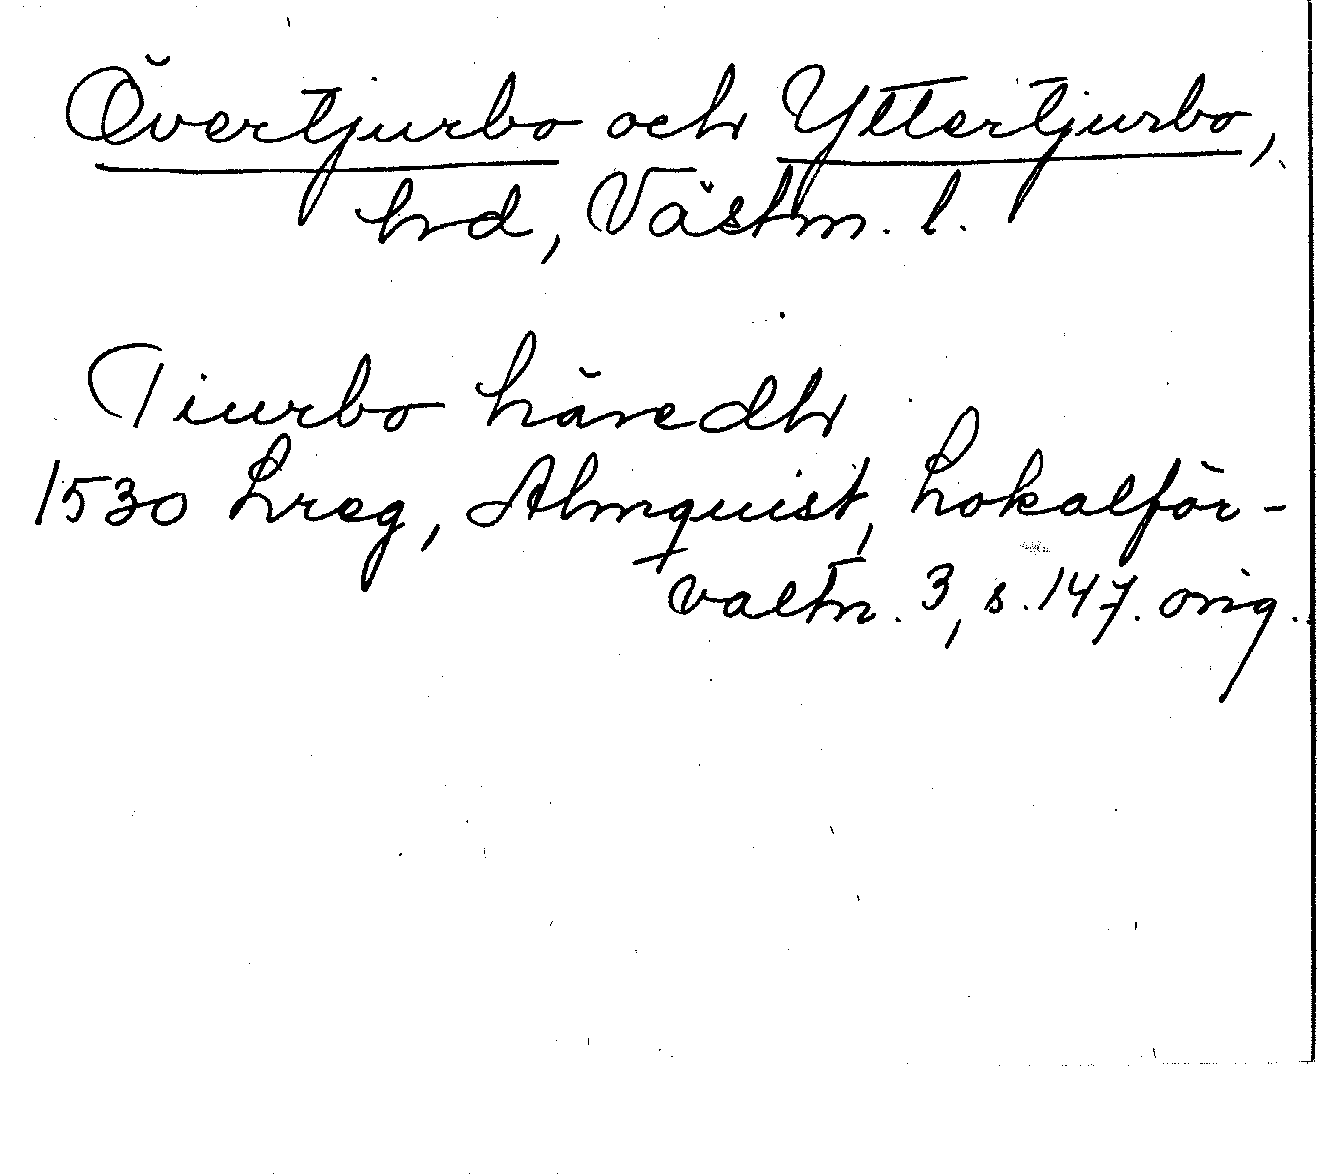 Övertjurbo och Yttertjurbo,
hrd, Västm. l.
Tiurbo häredh
1530 Lreg, Almquist, Lokalför-
valtn. 3, s. 147. orig.